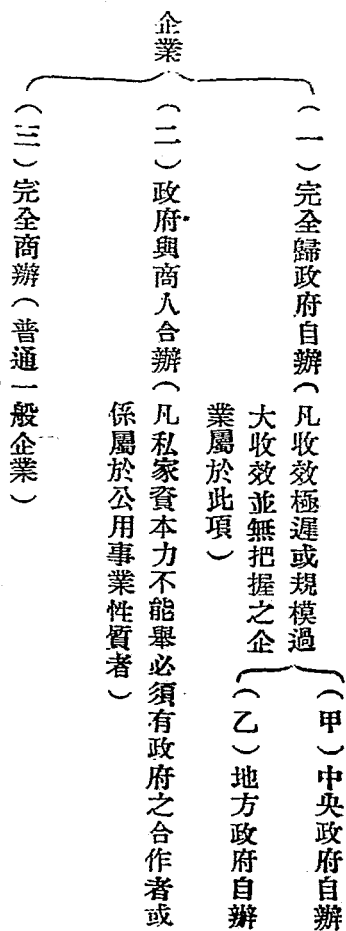 企業
（一）完全歸政府自辦（凡收效極遲或規模過
大收效並無把握之企
業屬於此項）
（甲）中央政府自辦
（乙）地方政府自辦
（二）政府與商人合辦（凡私家資本力不能舉必須有政府之合作者或
係屬於公用事業性質者）
（三）完全商辦（普通一般企業）